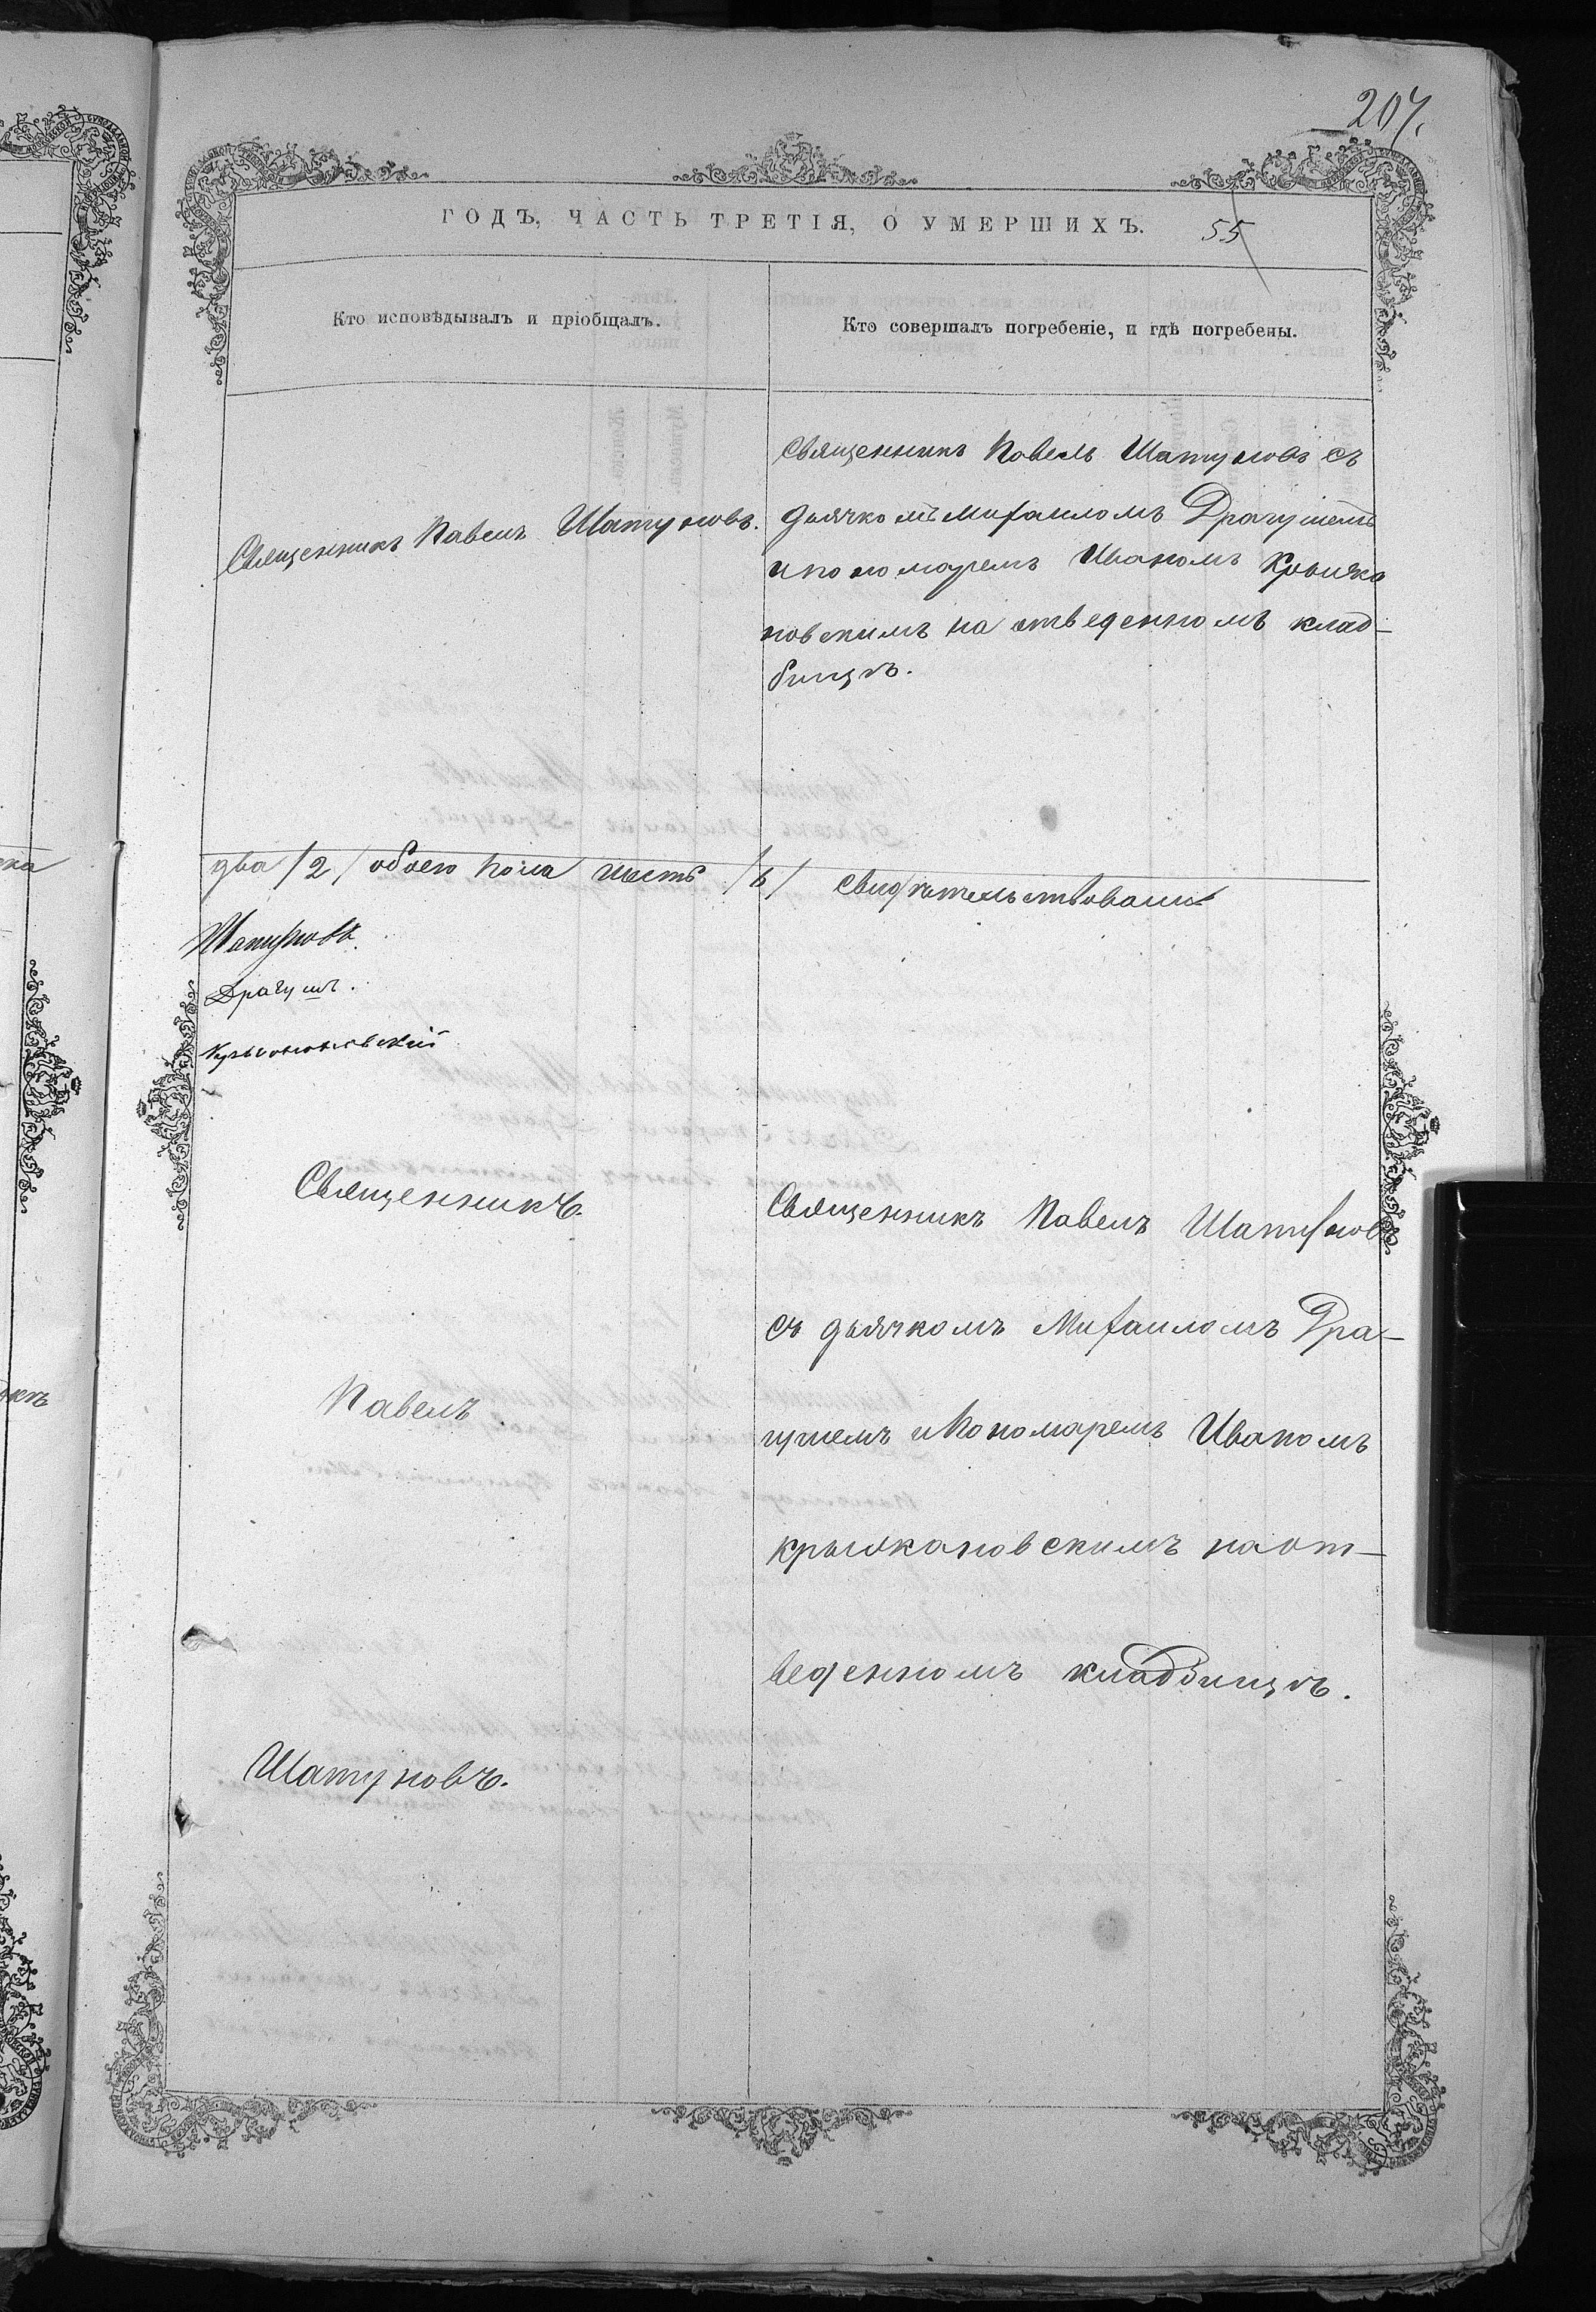 207.
ГОДЪ, ЧАСТЬ ТРЕТІЯ, О УМЕРШИХЪ.
55
Кто исповѣдывалъ и пріобщалъ.
Кто совершалъ погребеніе, и гдѣ погребены.
Священникъ Павелъ Шатуновъ.
Священникъ Павелъ Шатуновъ съ
дьячкомъ Михаиломъ Драгушемъ
и пономаремъ Иваномъ Крыжа
новскимъ на отведенномъ клад-
бищѣ.
два /2/ обоего пола шесть /6/ свидѣтельствовали
Шатуновъ.
Драгушъ.
Крыжановскій
Священникъ.
Павелъ.
Шатуновъ.
Священникъ Павелъ Шатуновъ
съ дьячкомъ Михаиломъ Дра-
гушемъ и Пономаремъ Иваномъ
Крыжановскимъ на от-
веденномъ кладбищѣ.